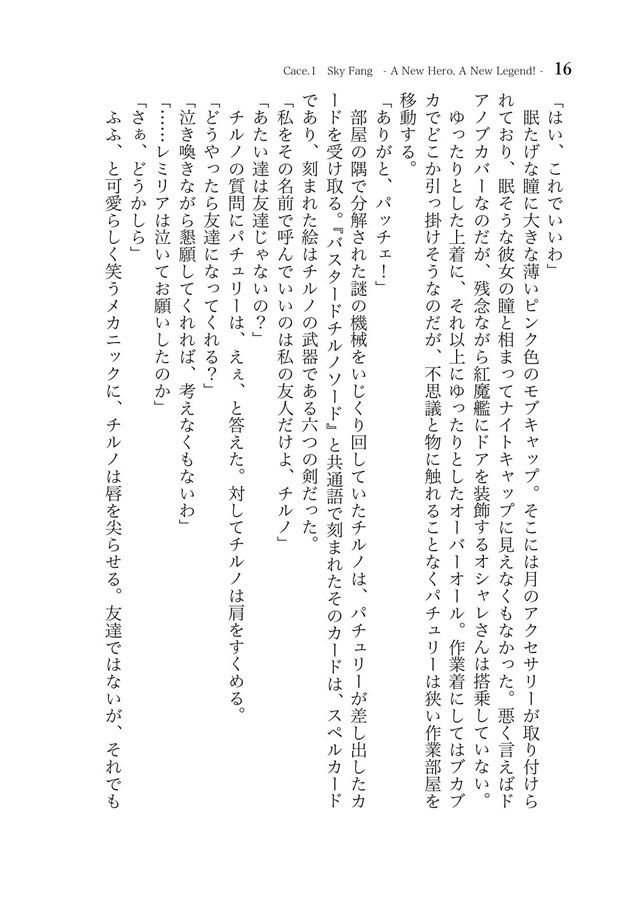 Cace.1　Sky Fang　- A New Hero. A New Legend! -　16
「はい、これでいいわ」
　眠たげな瞳に大きな薄いピンク色のモブキャップ。そこには月のアクセサリーが取り付けら
れており、眠そうな彼女の瞳と相まってナイトキャップに見えなくもなかった。悪く言えばド
アノブカバーなのだが、残念ながら紅魔艦にドアを装飾するオシャレさんは搭乗していない。
　ゆったりとした上着に、それ以上にゆったりとしたオーバーオール。作業着にしてはブカブ
カでどこか引っ掛けそうなのだが、不思議と物に触れることなくパチュリーは狭い作業部屋を
移動する。
「ありがと、パッチェ！」
　部屋の隅で分解された謎の機械をいじくり回していたチルノは、パチュリーが差し出したカ
ードを受け取る。『バスタードチルノソード』と共通語で刻まれたそのカードは、スペルカード
であり、刻まれた絵はチルノの武器である六つの剣だった。
「私をその名前で呼んでいいのは私の友人だけよ、チルノ」
「あたい達は友達じゃないの？」
　チルノの質問にパチュリーは、えぇ、と答えた。対してチルノは肩をすくめる。
「どうやったら友達になってくれる？」
「泣き喚きながら懇願してくれれば、考えなくもないわ」
「……レミリアは泣いてお願いしたのか」
「さぁ、どうかしら」
　ふふ、と可愛らしく笑うメカニックに、チルノは唇を尖らせる。友達ではないが、それでも